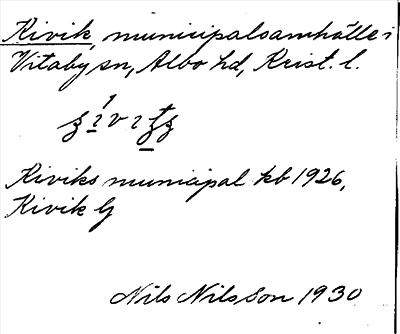 Kivik, municipalsamhälle i
Vitaby sn, Albo hd, Krist. l.
Kiviks municipal kb 1926,
Kivik lj
Nils Nilsson 1930